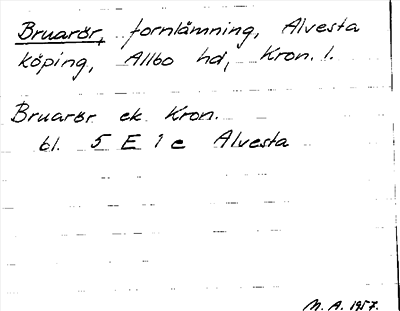 Bruarör, fornlämning, Alvesta
köping, Allbo hd, Kron. l.
Bruarör ek. Kron.
bl. 5 E 1 e Alvesta
M. A. 1957.